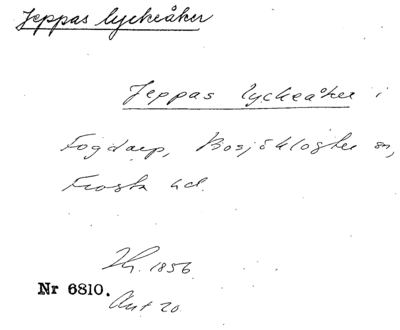 Jeppas lyckeåker
Jeppas lyckeåker i
Fogdarp, Bosjökloster sn,
Frosta hd.
Lh. 1856
Nr 6810.
Ant 20.